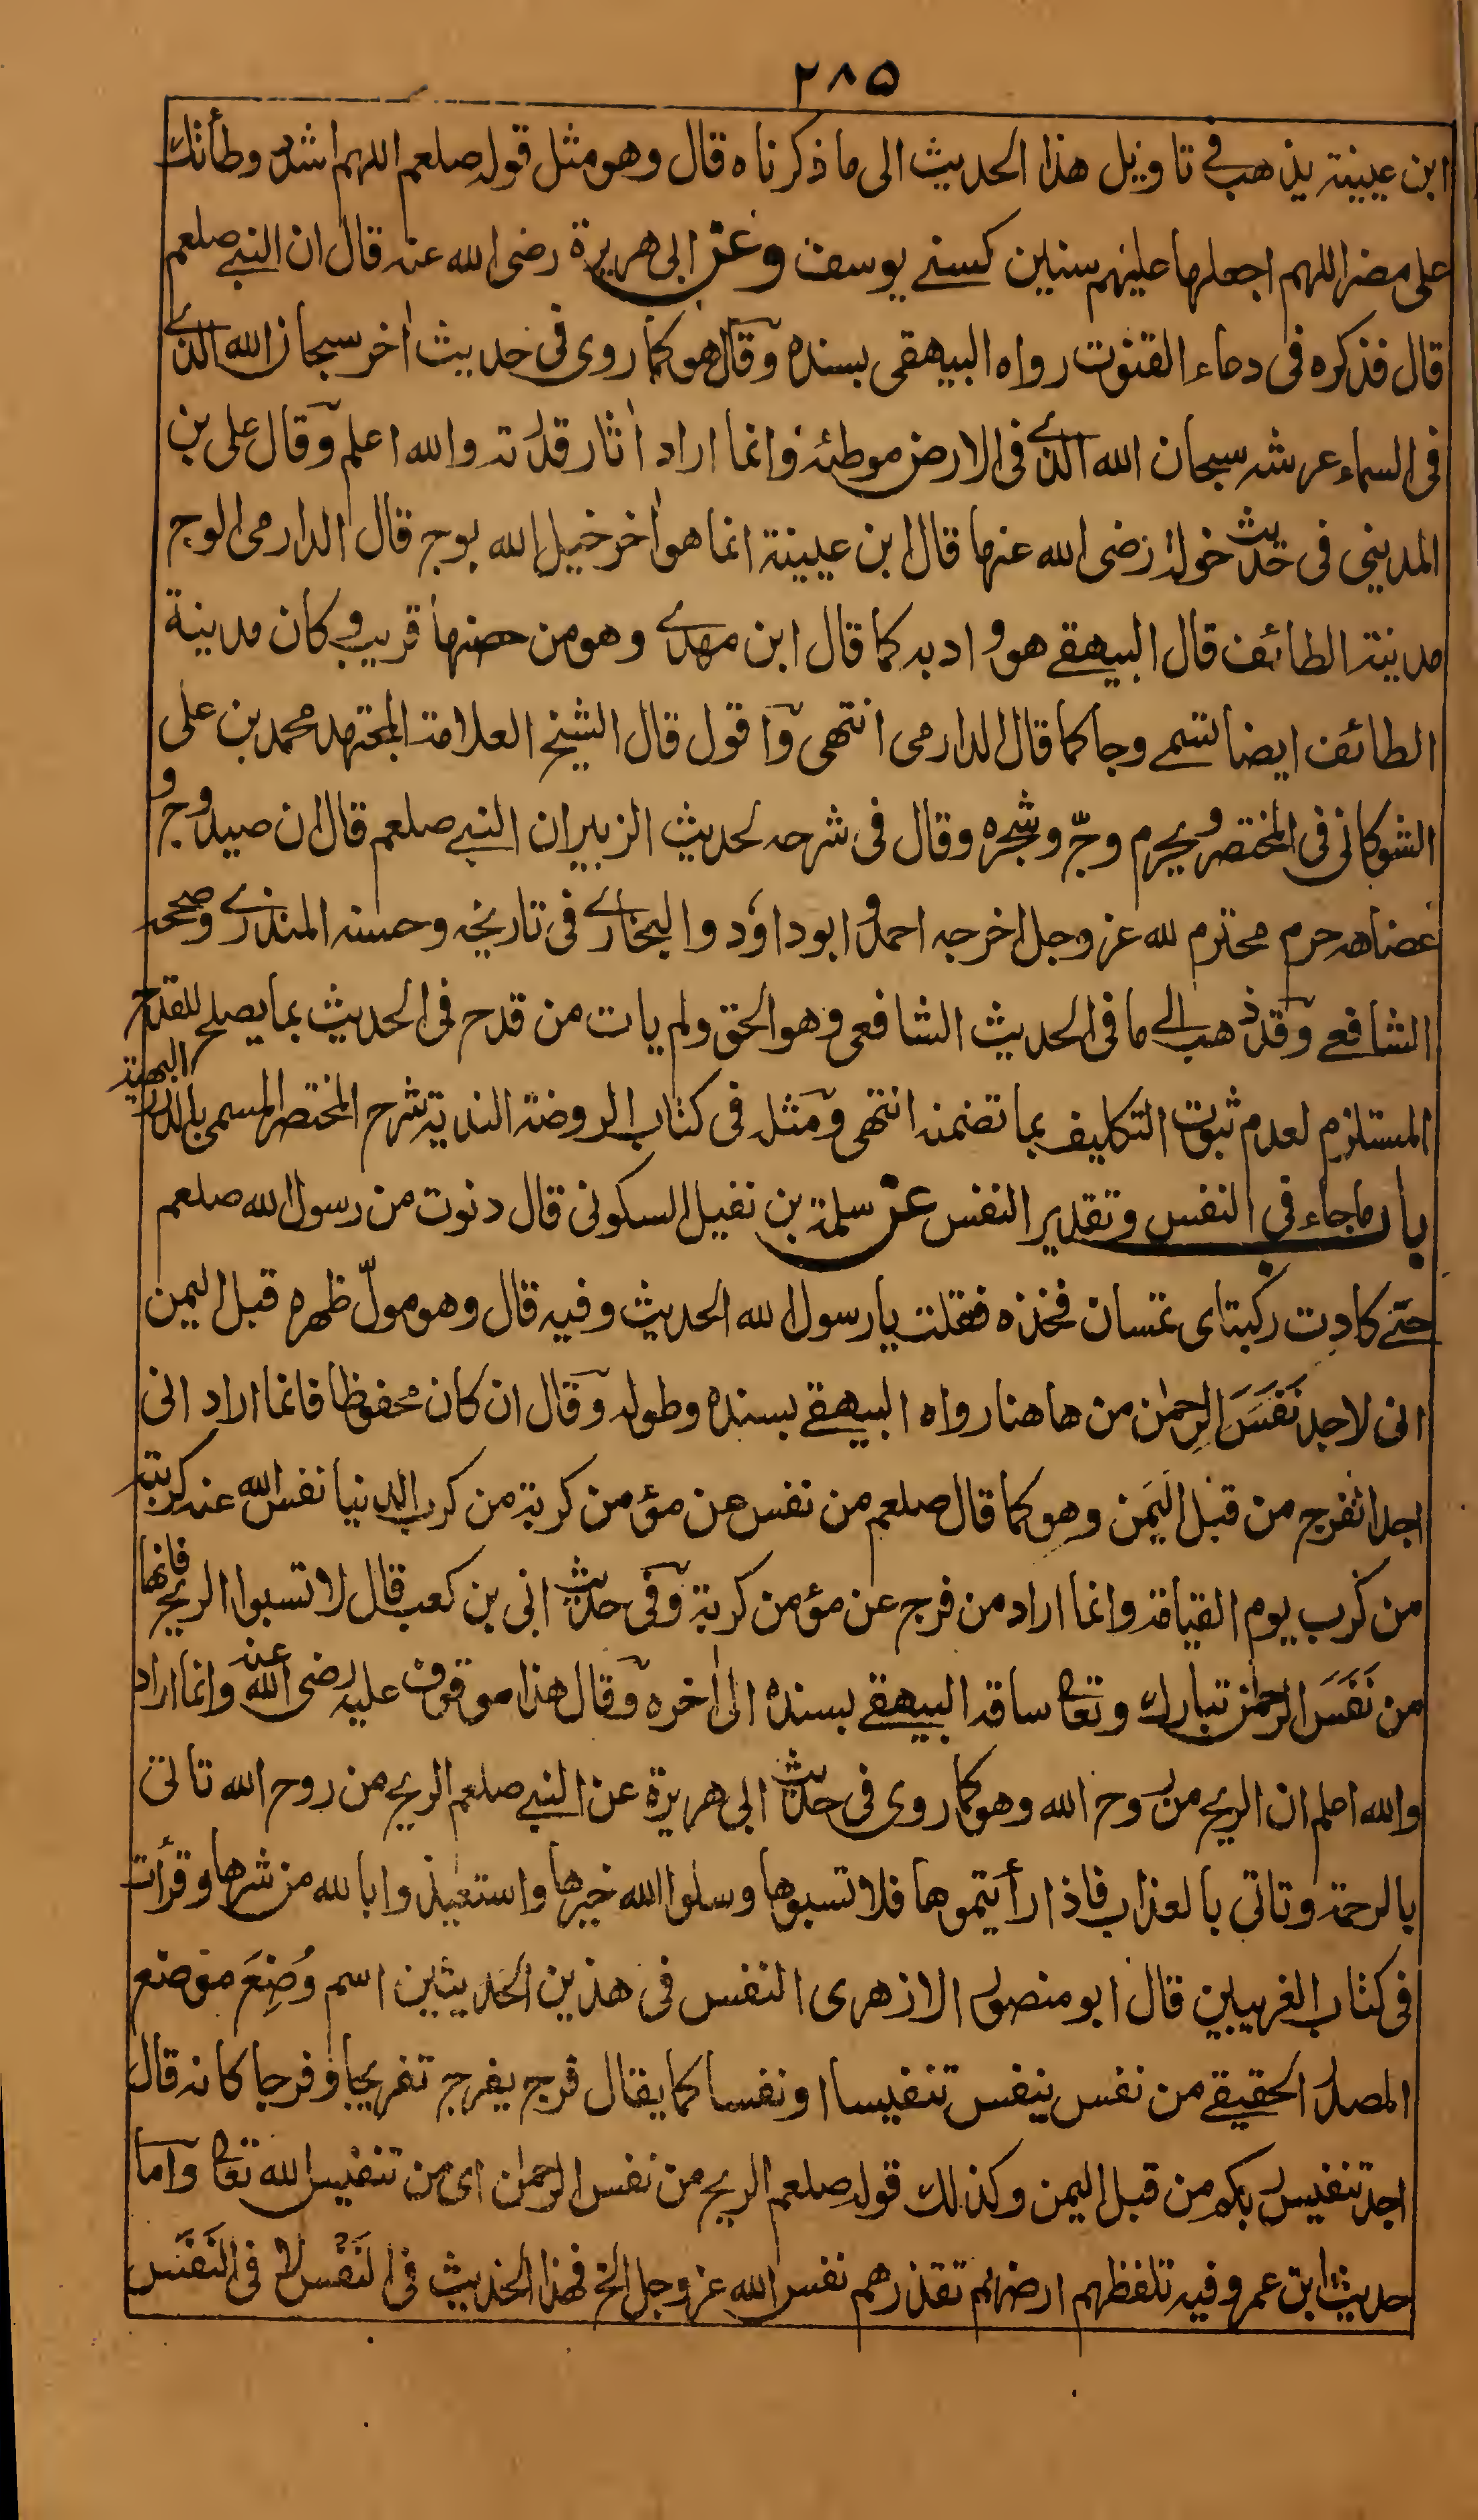 ٢٨٥
ابن عيينة يذهب فى تاويل هذا الحديث الى ما ذكرناه قال وهو مثل قوله صلعم اللهم اشدد وطأتك
على مضر اللهم اجعلها عليهم سنين كسنے يوسف وعن ابى هريرة رضى الله عنه قال ان النبے صلعم
قال فذكره فى دعاء القنوت رواه البيهقى بسنده وقال هو كما روى فى حديث اخر سبحان الله الذے
فى السماء عرشه سبحان الله الذے فى الارض موطئه وانما اراد اثار قدرته والله اعلم وقال على بن
المدينى فى حديث خولة رضى الله عنها قال ابن عيينة انما هو اخر خيل الله بوج قال الدارمى الوج
مدينة الطائف قال البيهقے هو واد به كما قال ابن مهدے وهو من حصنها قريب وكان مدينة
الطائف ايضا تسمے وجا كما قال الدارمى انتهى واقول قال الشيخ العلامة المجتهد محمد بن على
الشوكانى فى المختصر ويحرم وجّ وشجره وقال فى شرحه لحديث الزبير ان النبے صلعم قال ان صيد وج و
عضاهه حرم محترم لله عز وجل اخرجه احمد و ابو داود والبخارے فى تاريخه وحسنه المنذرے وصححه
الشافعے وقد ذهب الے ما فى الحديث الشافعى وهو الحق ولم يات من قدح فى الحديث بما يصلح للقدح
المستلزم لعدم ثبوت التكليف بما تضمنه انتهى ومثله فى كتاب الروضة الندية شرح المختصر المسمى بالدرر البهية
باب ما جاء فى النفس وتقدير النفس عن سلمة بن نفيل السكونى قال دنوت من رسول الله صلعم
حتے كادت ركبتاى تمسان فخذه فقلت يا رسول الله الحديث وفيه قال وهو مولّ ظهره قبل اليمن
انى لاجد نَفَسَ الرحمٰن من هاهنا رواه البيهقے بسنده وطوله وقال ان كان محفوظا فانما اراد انى
اجد الفرج من قبل اليَمَن وهو كما قال صلعم من نفس عن مؤمن كربة من كرب الدنيا نفس الله عنه كربة
من كرب يوم القيامة وانما اراد من فرج عن مؤمن كربة وفى حديث ابى بن كعب قال لا تسبوا الريح فانها
من نَفَسَ الرحمٰن تبارك وتعالى ساقه البيهقے بسنده الى اخره وقال هذا موقوف عليه رضى الله عنه وانما اراد
والله اعلم ان الريح من روح الله وهو كما روى فى حديث ابى هريرة عن النبے صلعم الريح من روح الله تاتى
بالرحمة وتاتى بالعذاب فاذا رأيتموها فلا تسبوها وسلوا الله خيرها واستعيذوا بالله من شرها وقرأت
فى كتاب الغريبين قال ابو منصور الازهرى النفس فى هذين الحديثين اسم وُضِعَ موضع
المصدر الحقيقے من نفس ينفس تنفيسا او نفسا كما يقال فرج يفرج تفريجا وفرجا كانه قال
اجد تنفيس ربكم من قبل اليمن وكذلك قوله صلعم الريح من نفس الرحمٰن اى من تنفيس الله تعالى واما
حديث ابن عمر وفيه تلفظهم ارضهم تقذرهم نفس الله عز وجل الخ فهذا الحديث فى النَفْس لا فى النَفَس